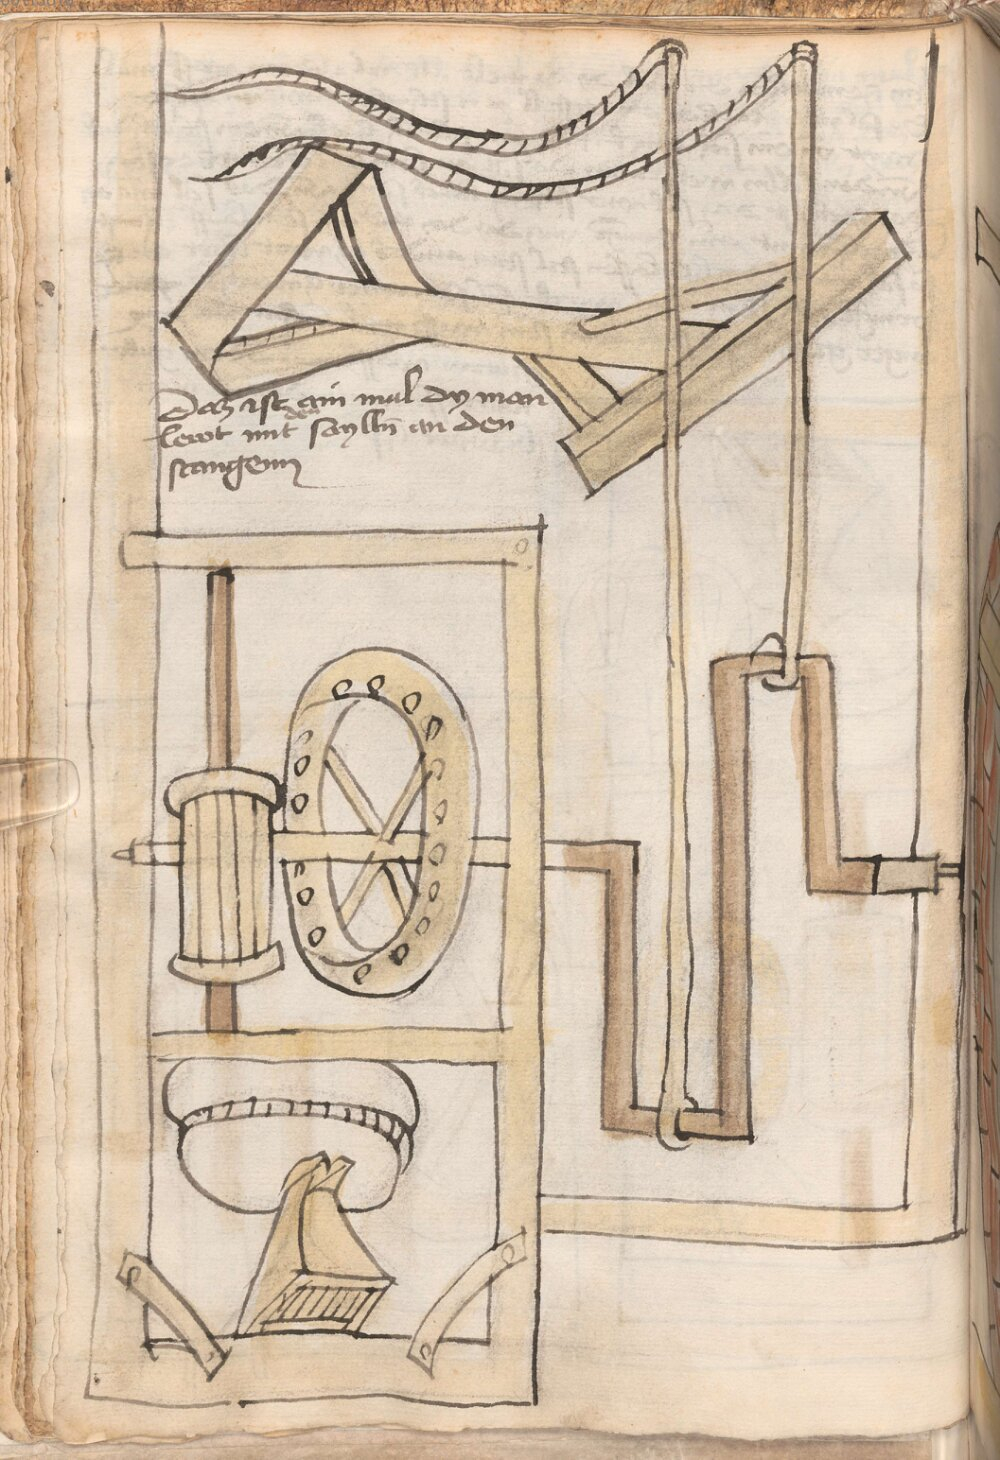 Daz ist ain mul dy man
den
lewt mit saylln an den
stangenn